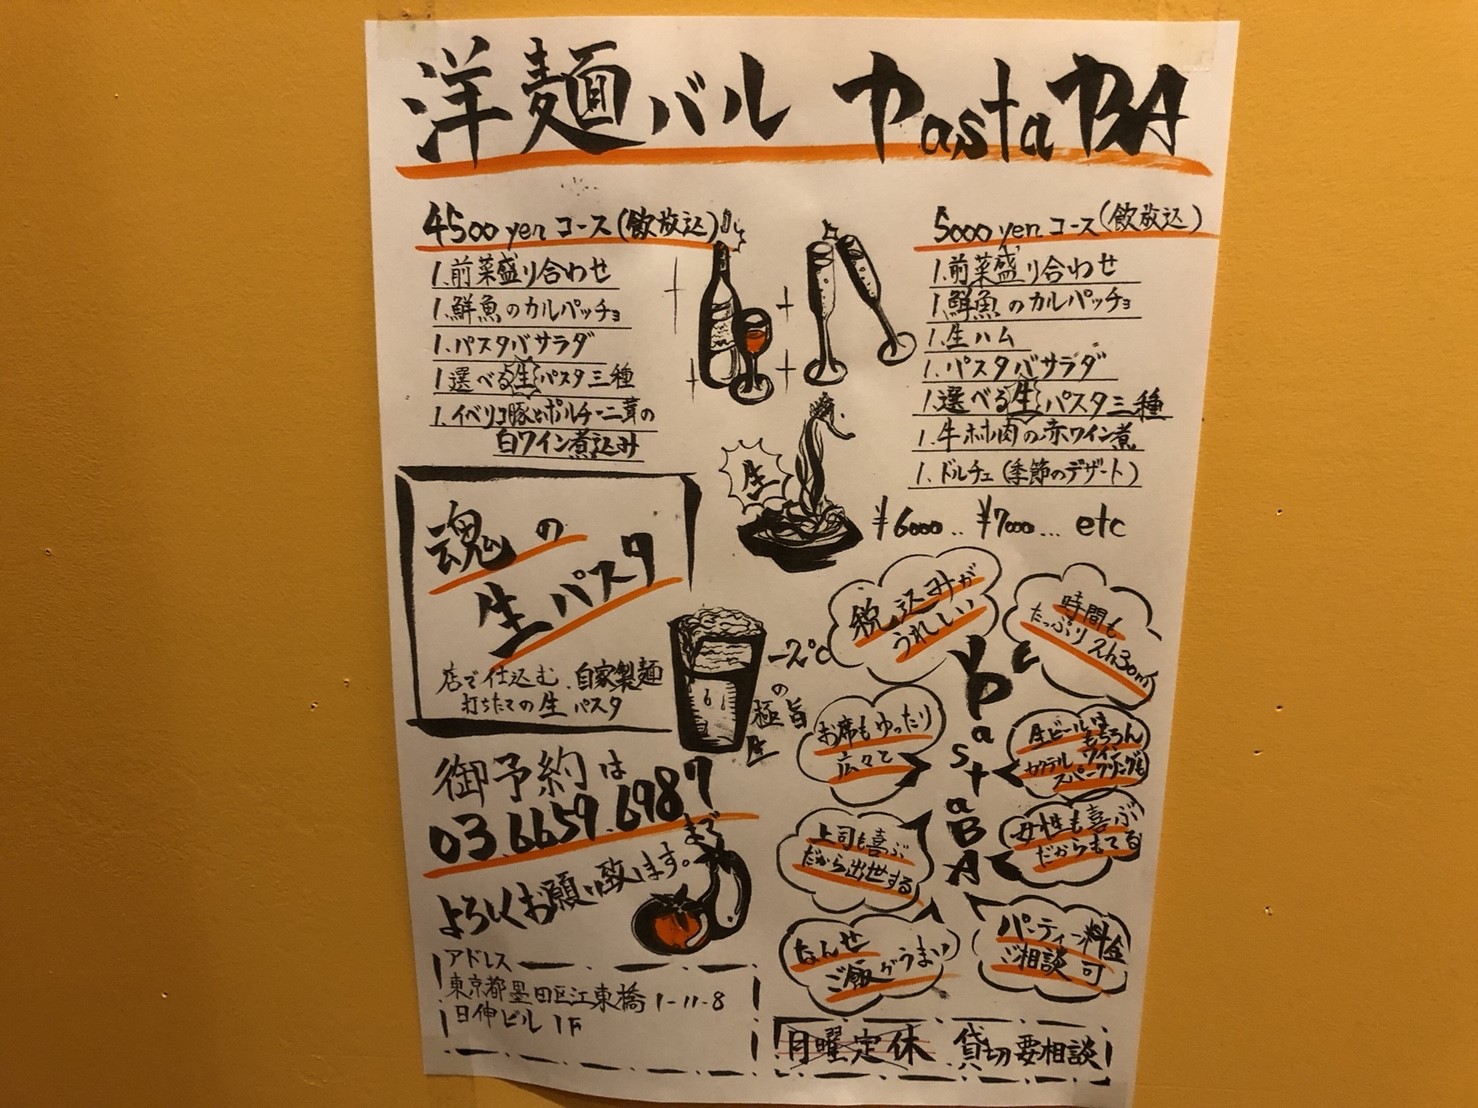 洋麺バル PastaBA
4500 yen コース(飲放込)
1.前菜盛り合わせ
1.鮮魚のカルパッチョ
1.パスタバサラダ
1.選べる生パスタ三種
1.イベリコ豚とポルチーニ茸の
白ワイン煮込み
5000 yen コース(飲放込)
1.前菜盛り合わせ
1.鮮魚のカルパッチョ
1.生ハム
1.パスタバサラダ
1.選べる生パスタ三種
1.牛ホホ肉の赤ワイン煮
1.ドルチェ(季節のデザート)
¥6000.. ¥7000... etc
生
魂の
生パスタ
店で仕込む.自家製麺
打ちたての生パスタ
-2℃
の
極旨
生
御予約は
03.6659.6987
まで
よろしくお願い致します。
アドレス
東京都墨田区江東橋1-11-8
日伸ビル 1F
税込みが
うれしい
時間も
たっぷり 2h30m
PastaBA
お席もゆったり
広々と
生ビールはもちろん
カクテル ワイン
スパークリングも
上司も喜ぶ
だから出世する
女性も喜ぶ
だからもてる
なんせ
ご飯がうまい
パーティー料金
ご相談可
月曜定休 貸切要相談